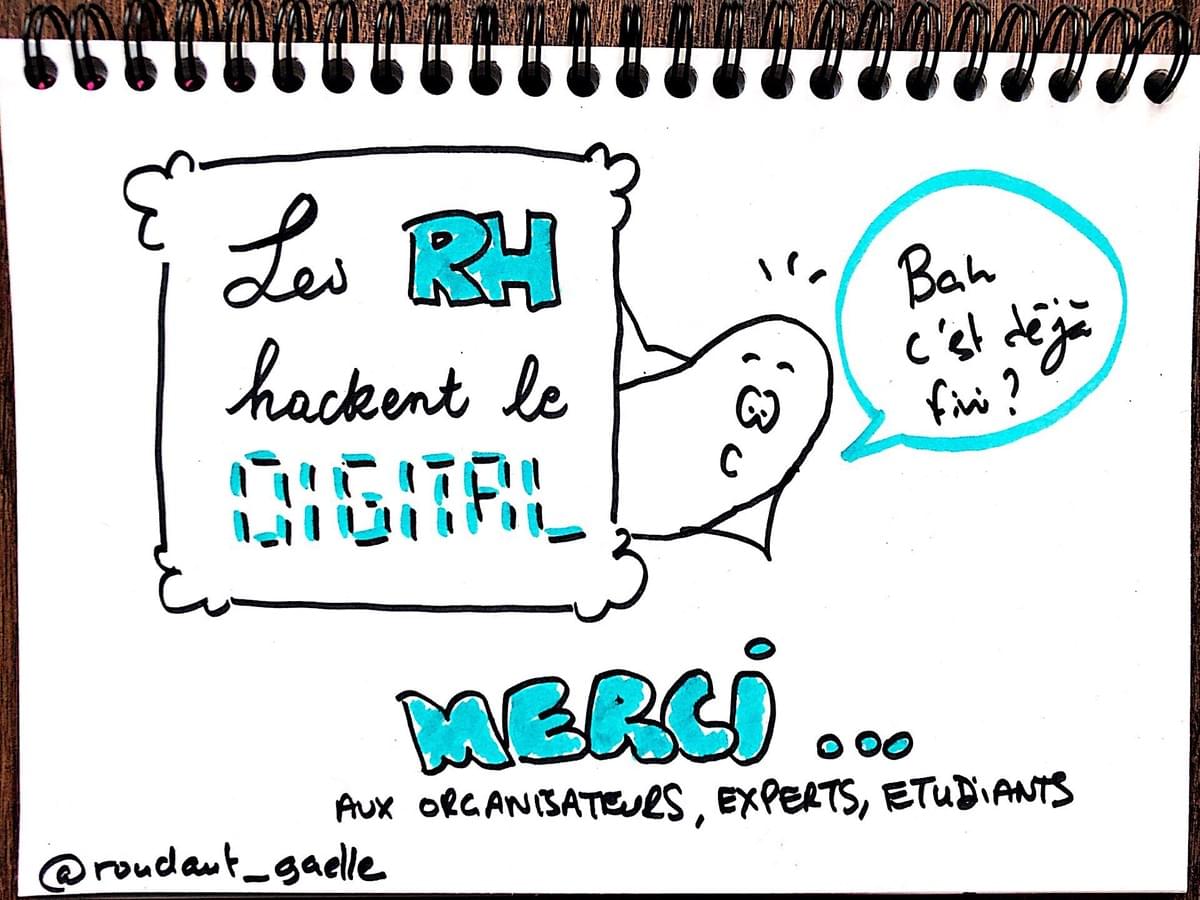 Les RH
hackent le
DIGITAL
Bah
c'est déjà
fini ?
MERCI ...
AUX ORGANISATEURS, EXPERTS, ETUDIANTS
@roudaut_gaelle